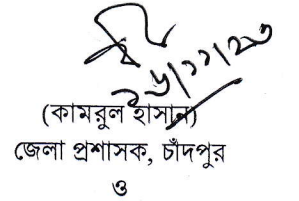 ২৬/১১/২৩
(কামরুল হাসান)
জেলা প্রশাসক, চাঁদপুর
ও